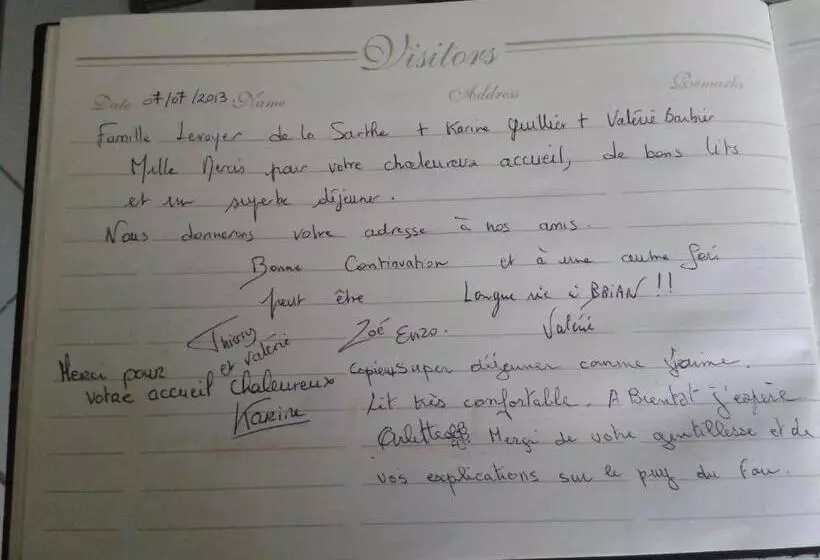 Visitors
Date 07/07/2013 Name Address Remarks
Famille Levayer de la Sarthe + Karine Guillier + Valérie Barbier
Mille Mercis pour votre chaleureux accueil, de bons lits
et un superbe déjeuner.
Nous donnerons votre adresse à nos amis.
Bonne Continuation et à une autre foi
peut être Longue vie à BRIAN !!
Thierry et Valérie Zoé Enzo. Valérie
Merci pour
votre accueil chaleureux
Karine
Copieux Super déjeuner comme j'aime.
Lit très confortable. A Bientot j'espère
Arlette Merçi de votre gentillesse et de
vos explications sur le puy du fou.